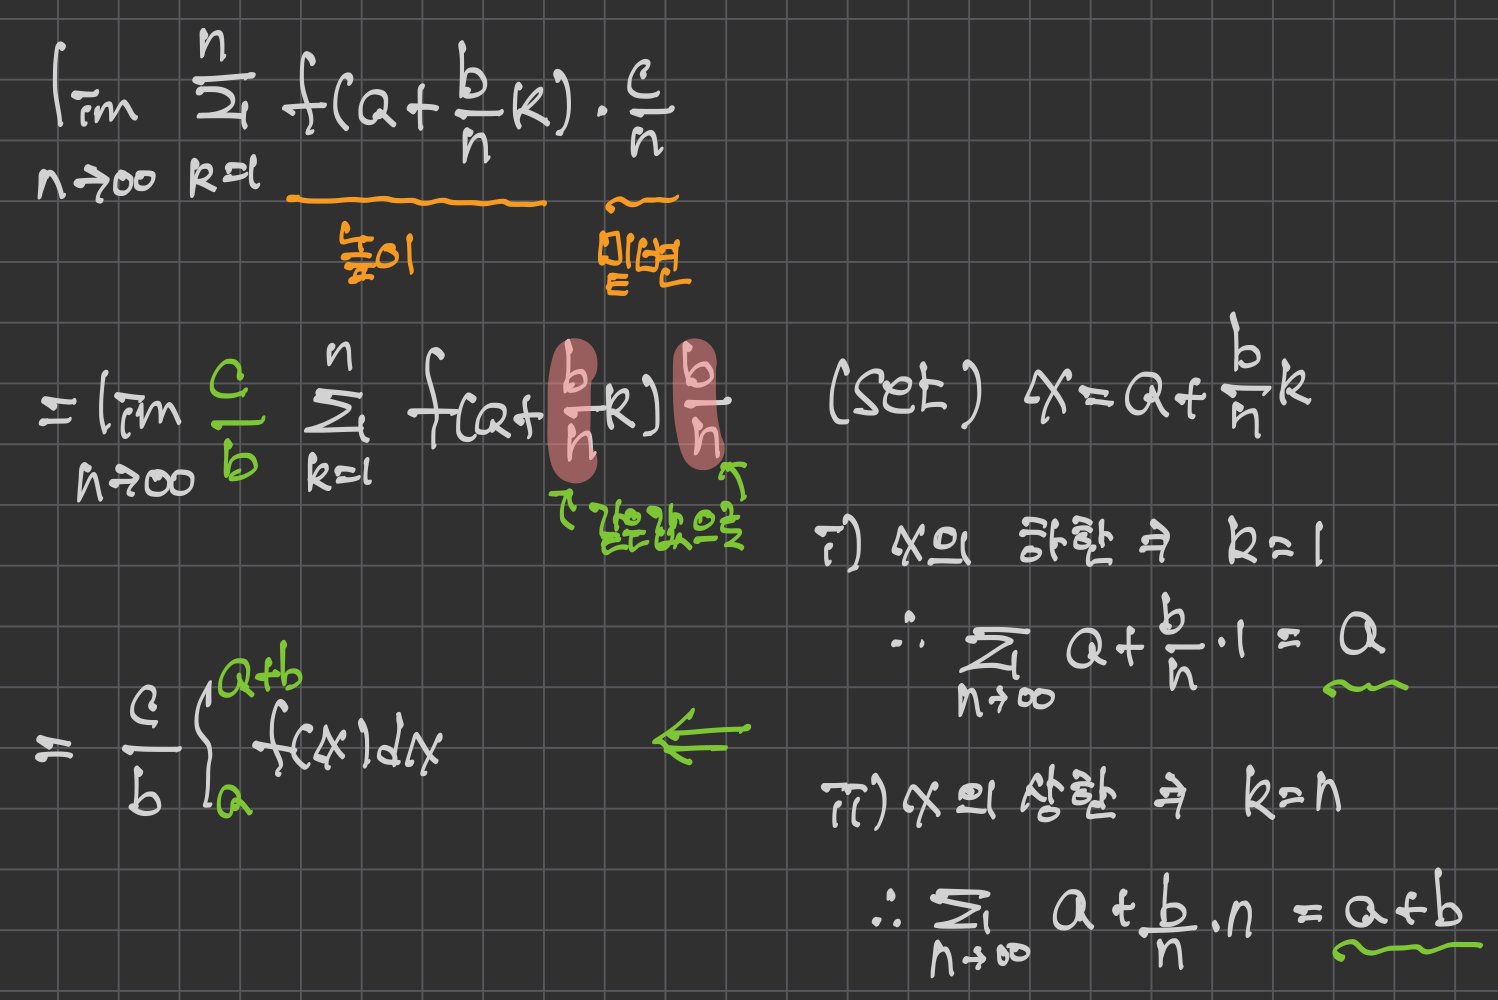 lim n→∞ n Σ k=1 f(a + b/n k) · c/n
높이 밑변
= lim n→∞ c/b n Σ k=1 f(a + b/n k) b/n
같은 값으로
= c/b ∫ a a+b f(x)dx
(Set) x = a + b/n k
i) x의 하한 ⇒ k = 1
∴ Σ n→∞ a + b/n · 1 = a
ii) x의 상한 ⇒ k = n
∴ Σ n→∞ a + b/n · n = a + b